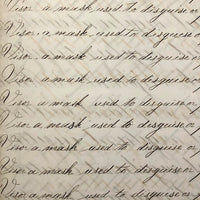 Visor a mask used to disguise or
Visor a mask used to disguise or
Visor a mask used to disguise or
Visor a mask used to disguise or
Visor a mask used to disguise or
Visor a mask used to disguise or
Visor a mask used to disguise or
Visor a mask used to disguise or